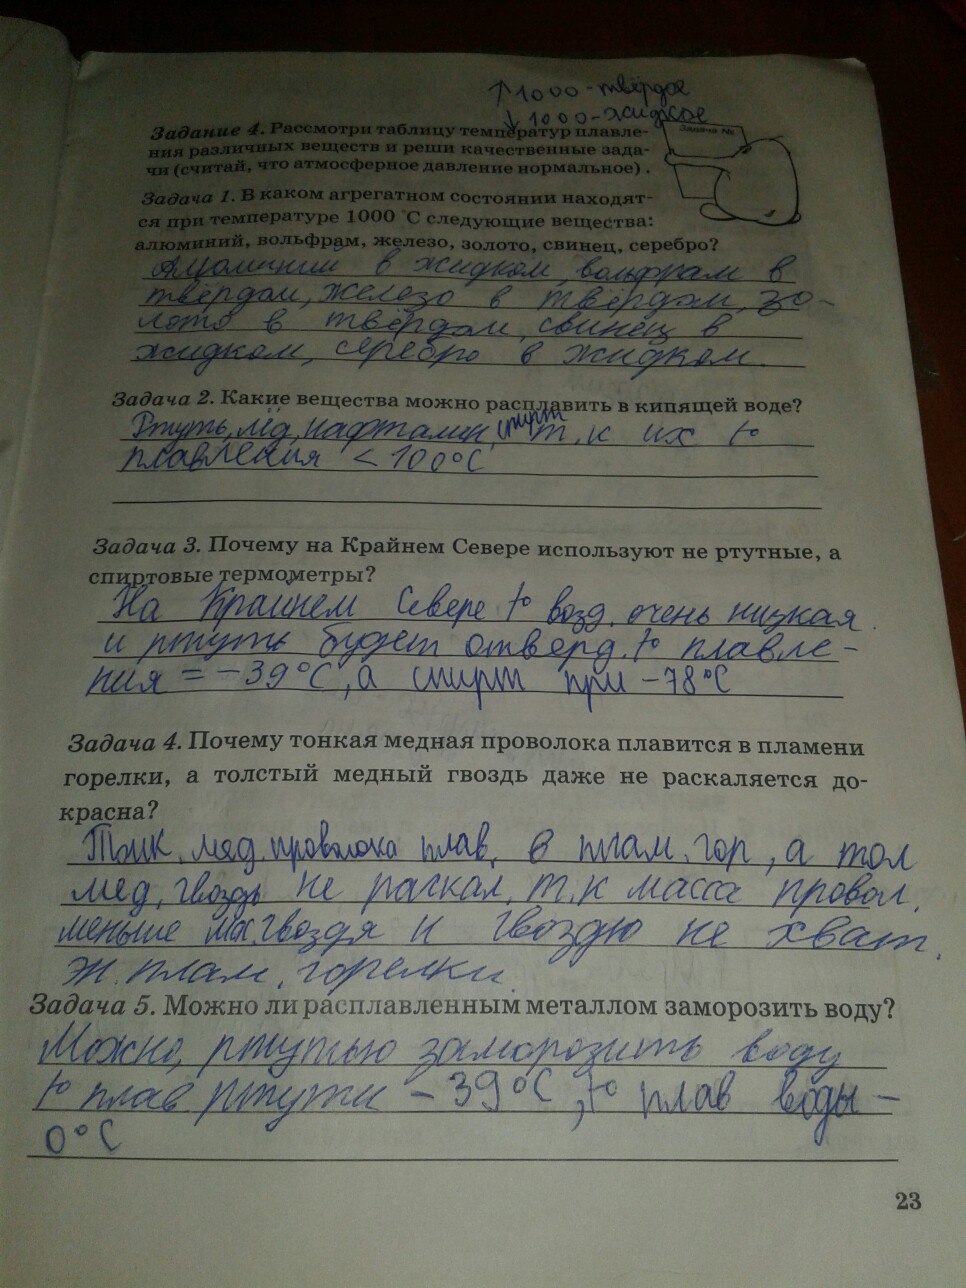 ↑1000-твёрдое
↓1000-жидкое
Задача №
Задание 4. Рассмотри таблицу температур плавле-
ния различных веществ и реши качественные зада-
чи (считай, что атмосферное давление нормальное).
Задача 1. В каком агрегатном состоянии находят-
ся при температуре 1000 °С следующие вещества:
алюминий, вольфрам, железо, золото, свинец, серебро?
Алюминий в жидком, вольфрам в
твёрдом, железо в твёрдом, зо-
лото в твёрдом, свинец в
жидком, серебро в жидком.
Задача 2. Какие вещества можно расплавить в кипящей воде?
Ртуть, лёд, нафталин, спирт т.к их t°
плавления < 100°C
Задача 3. Почему на Крайнем Севере используют не ртутные, а
спиртовые термометры?
На Крайнем Севере t° возд. очень низкая
и ртуть будет отверд. t° плавле-
ния = -39°C, а спирт при -78°C
Задача 4. Почему тонкая медная проволока плавится в пламени
горелки, а толстый медный гвоздь даже не раскаляется до-
красна?
мед. проволока плав. в плам. гор, а тол
мед. гвоздь не раскал. т.к масса провол.
меньше гвоздя и гвоздю не хват.
плам. горелки.
Задача 5. Можно ли расплавленным металлом заморозить воду?
Можно, ртутью заморозить воду
t° плав. ртути -39°C, t° плав воды -
0°C
23